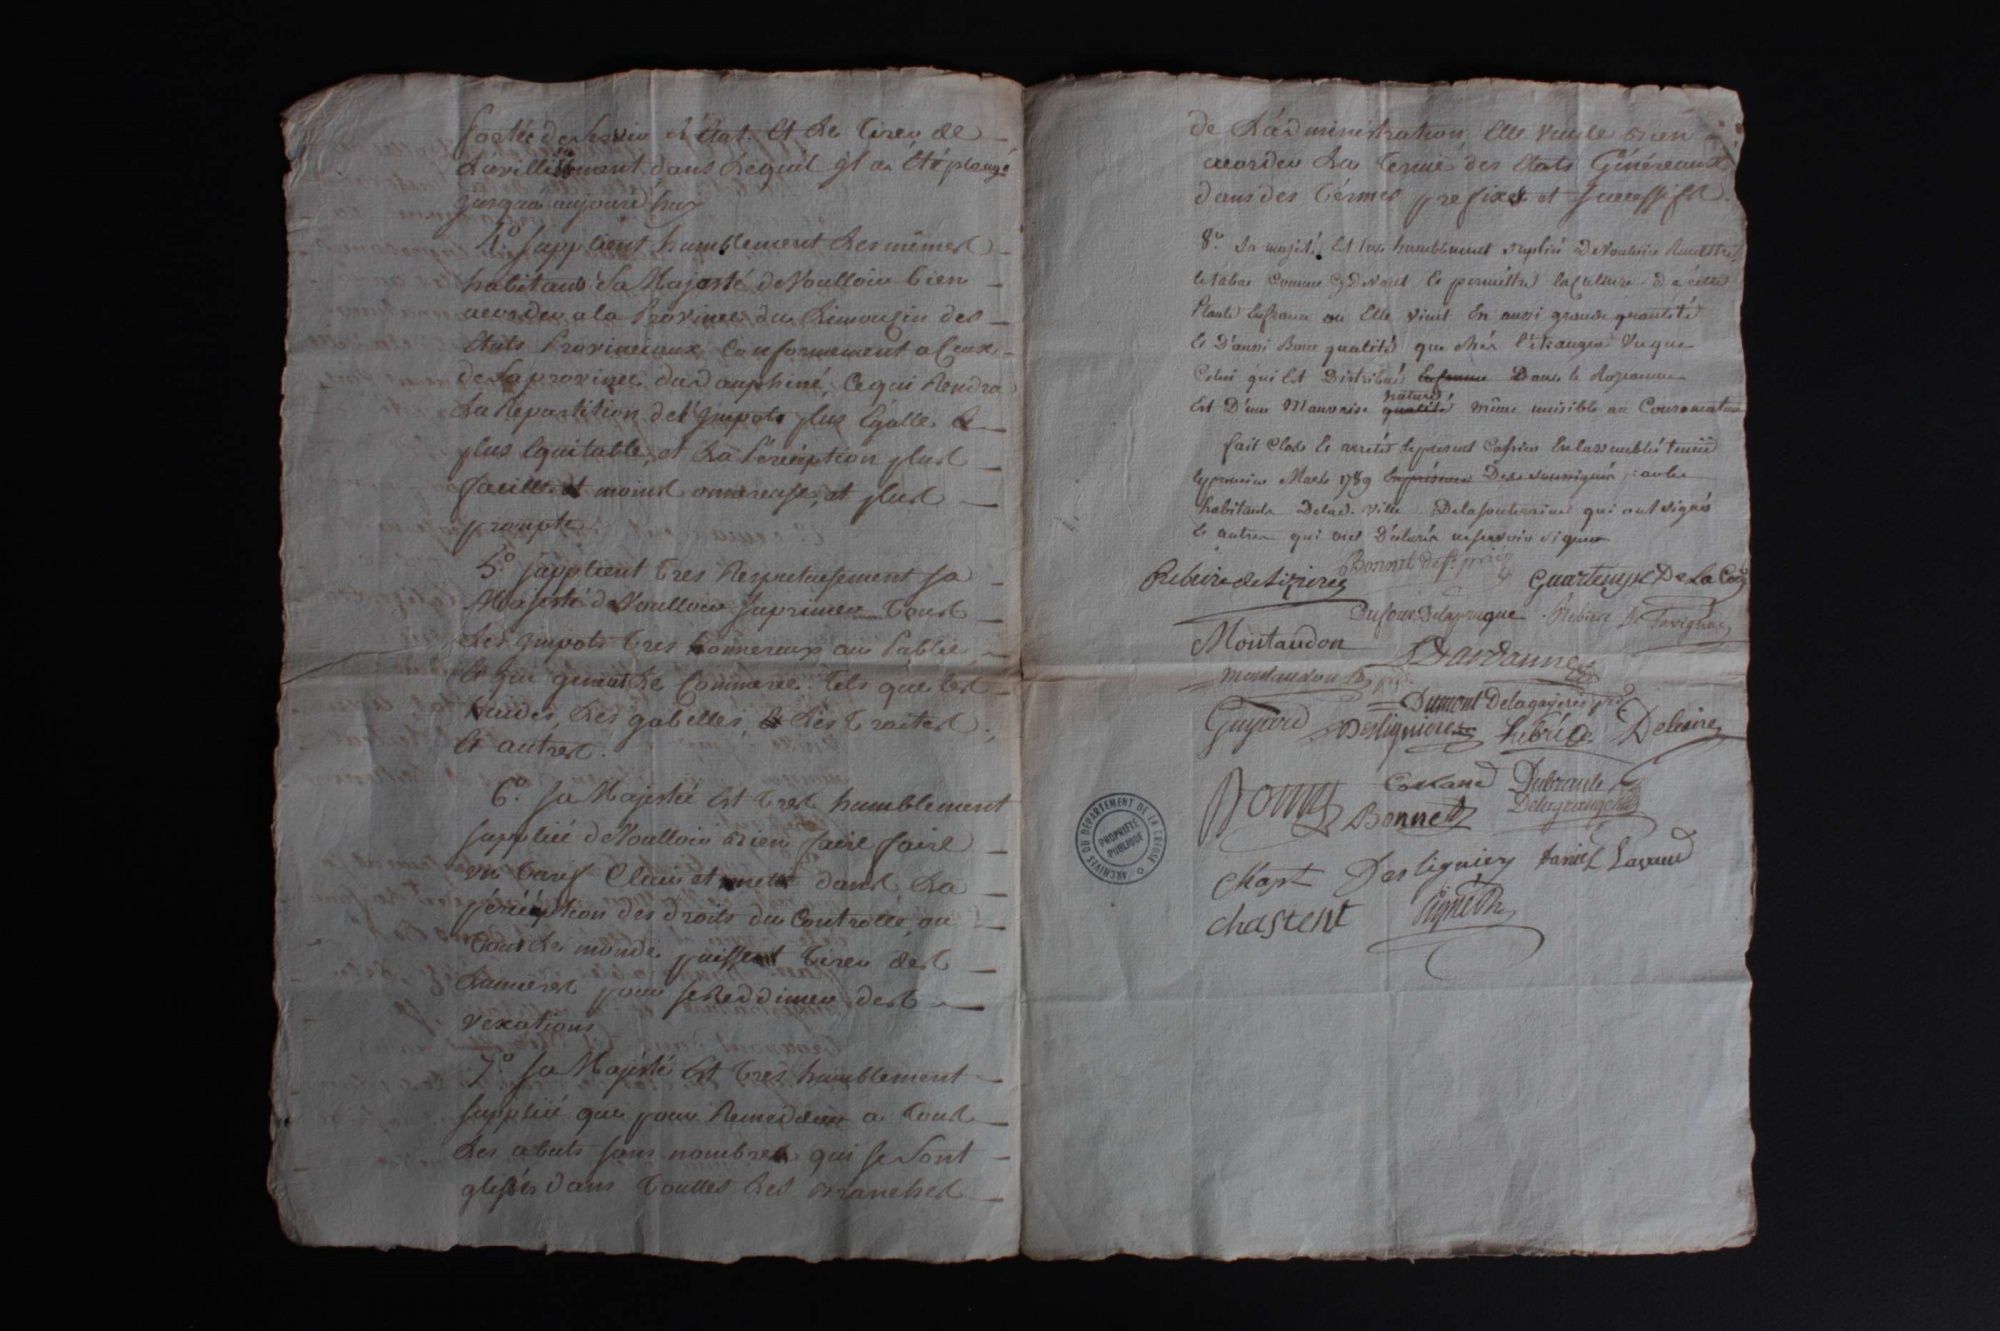 portée de servir l'état. Et de tirer de
L'avilissement dans Lequel il a Été plongé
jusqu'a aujourd'huy
4.° supplient humblement Les mêmes
habitants Sa Majesté de Voulloir bien
accorder a la Province du Limouzin des
Etats Provinciaux Conformement a Ceux
de La province du dauphiné, Ce qui Rendra
La Repartition de l'Impots plus Egalle &
plus Equitable, et La Perception plus
facille et moins onnereuse, et plus
prompte
5.° supplient tres Respectueusement sa
Majesté de Voulloir suprimer Tous
Les Impots tres honnereux au Public
Et qui genent Le Commerce. Tels que les
aides, Les gabelles, & Les traites,
Et autres.
6.° sa Majesté Est tres humblement
suppliée de Voulloir bien faire faire
un tarif Clair et nette dans La
perception des droits du Controlle, ou
tous Le monde puissent tirer des
Lumieres pour se Reddimer des
vexations
7.° sa Majesté Est tres humblement
suppliée que pour Remedier a Tous
Les abuts sans nombres qui se sont
glissés dans touttes Les branches
de L'administration, Elle veuile bien
accorder La tenue des Etats Généraux
dans des Térmes prefixes et successifs.
8.° Sa majesté Est tres humblement supliée De Vouloir Remettre
le tabac Comme Cy devant Et permettre la Culture de cette
Plante En france ou Elle vient En aussi grande quantité
Et D'aussi Bonne qualité que chés l'étranger Vu que
Celui qui Est Distribué En france Dans le Royaume
Est D'une Mauvaise qualité nature même nuisible au Consomateur
fait Clos Et arrêté le present Cahier En l'assemblée tenüe
le premier Mars 1789 Des soussignés
habitants De lad. Ville De la Souterraine qui ont signés
Et autres qui ont Déclarés ne sçavoir signer
Bonnet de St priey
Rebiere de Lizieres
Quarteyron De La Cou
Dufour Delaprugue
Rebiere De Favignac
Montaudon
Dardanne
montaudon
Dumont Delagayerie
Guyard
Desligniere
Lebréde
Deleziret
Bonnet
Dubranle
Delagrange
Chapt
Desligniers
Daniel Lazaud
chastent
ARCHIVES DU DÉPARTEMENT DE LA CREUSE
PROPRIÉTÉ
PUBLIQUE